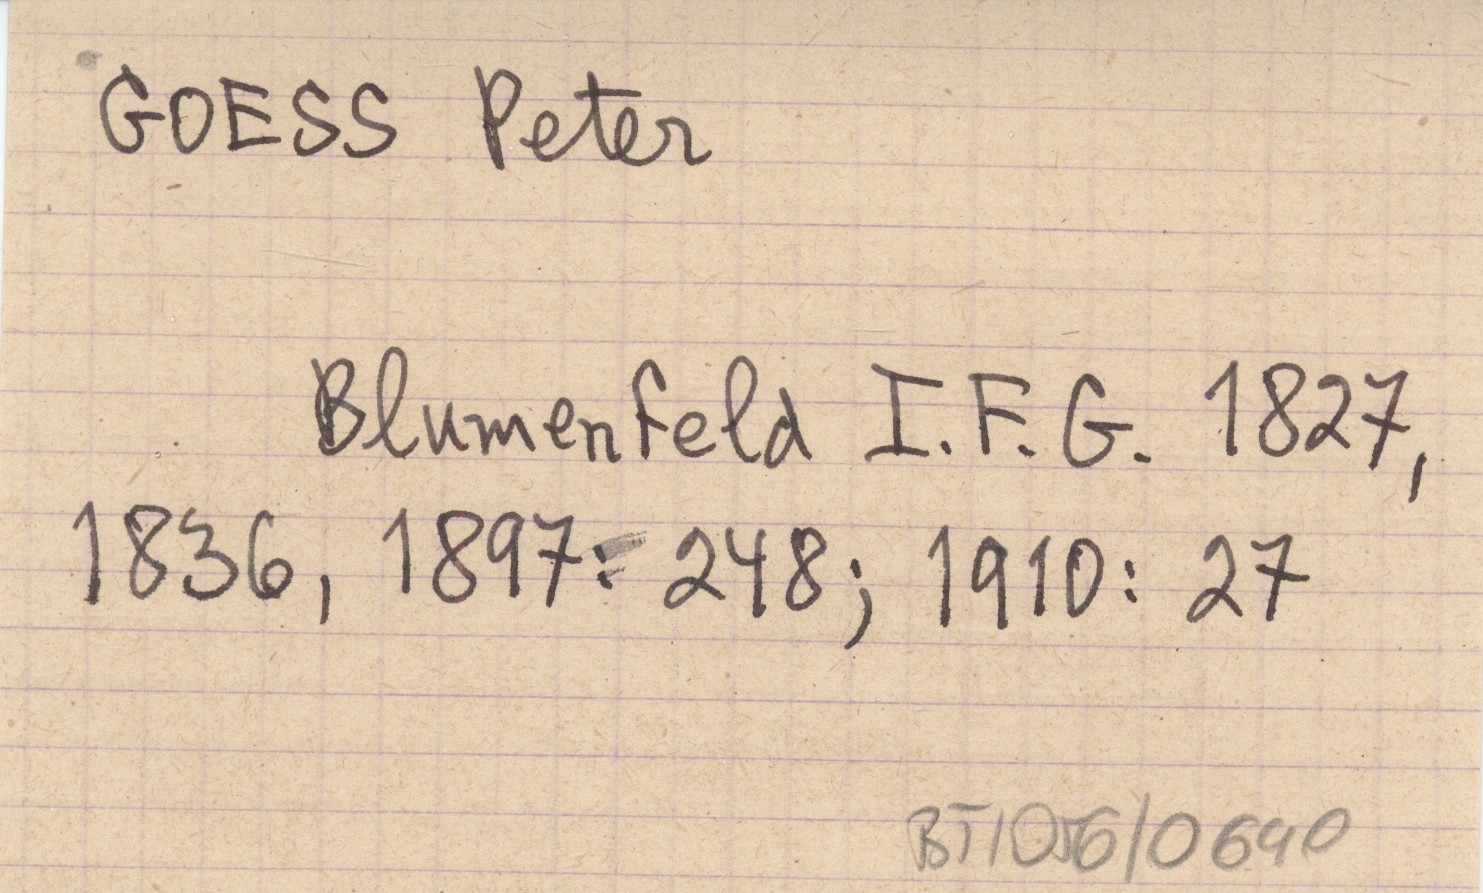 GOESS Peter
Blumenfeld I.F.G. 1827,
1836, 1897: 248; 1910: 27
BT1056/0640